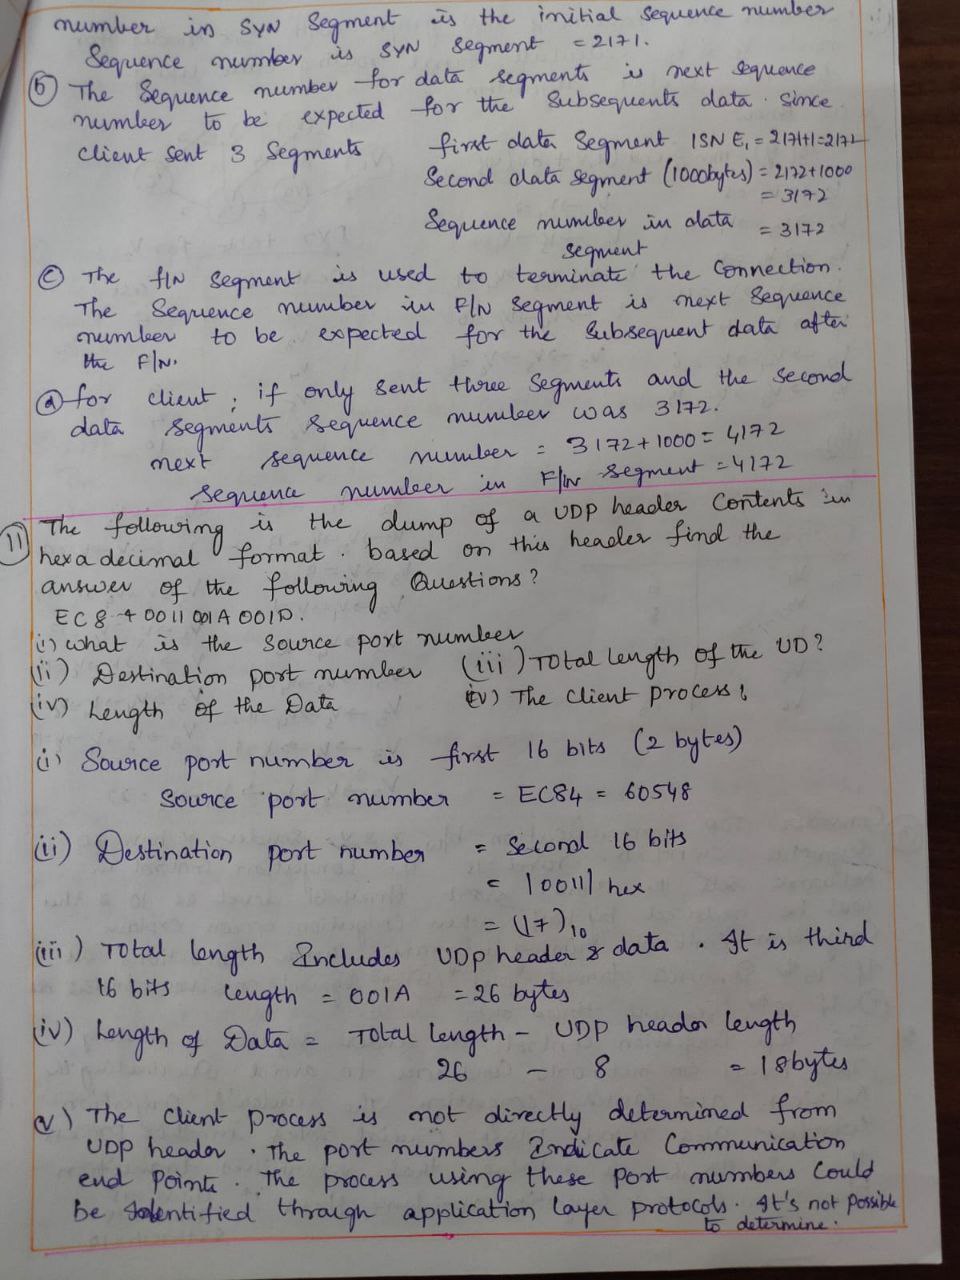 number in SYN Segment is the initial sequence number
Sequence number is SYN segment = 2171.
(b) The Sequence number for data segments is next sequence
number to be expected for the Subsequents data. Since
client sent 3 Segments
first data Segment ISN E, = 2171+1=2172
Second data segment (1000bytes) = 2172+1000
= 3172
Sequence number in data segment = 3172
(c) The FIN segment is used to terminate the Connection.
The Sequence number in FIN segment is next Sequence
number to be expected for the Subsequent data after
the FIN.
(d) for client, if only sent three Segments and the second
data segments sequence number was 3172.
next sequence number = 3172+1000 = 4172
sequence number in FIN segment = 4172
(11) The following is the dump of a UDP header Contents in
hexa decimal format. based on this header find the
answer of the following Questions?
EC84 0011 001A 001D.
(i) what is the Source port number
(ii) Destination port number (iii) Total length of the UD?
(iv) Length of the Data (v) The client process?
(i) Source port number is first 16 bits (2 bytes)
Source port number = EC84 = 60548
(ii) Destination port number = Second 16 bits
= (0011) hex
= (17)10
(iii) Total length Includes UDP header & data. It is third
16 bits length = 001A = 26 bytes
(iv) Length of Data = Total length - UDP header length
26 - 8 = 18 bytes
(v) The client process is not directly determined from
UDP header. The port numbers Indicate Communication
end Points. The process using these port numbers could
be Identified through application layer protocols. It's not possible
to determine.